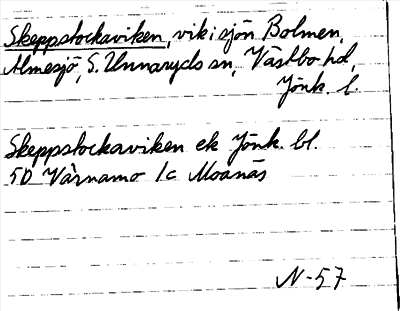 Skeppstockaviken, vik i sjön Bolmen,
Almesjö, S. Unnaryds sn, Västbo hd,
Jönk. l.
Skeppstockaviken ek Jönk. bl.
5D Värnamo 1c Moanäs
N-57